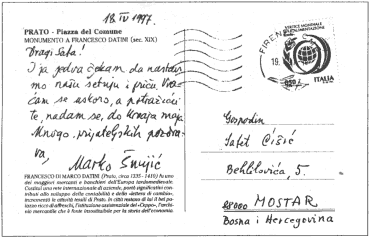 18. IV 1997.
PRATO - Piazza del Comune
MONUMENTO A FRANCESCO DATINI (sec. XIX)
Dragi Safa!
I ja jedva čekam da nastavi-
mo našu šetnju i priču. Vra-
ćam se uskoro, a potražiću
te, nadam se, do kraja maja
Mnogo prijateljskih pozdra-
va,
Marko
FRANCESCO DI MARCO DATINI (Prato, circa 1335 - 1410) fu uno
dei maggiori mercanti e banchieri dell'Europa tardomedievale.
Costituì una rete internazionale di aziende, portò significativi con-
tributi allo sviluppo della contabilità e della «lettera di cambio»,
incrementò le attività tessili di Prato. In città restano di lui il bel pa-
lazzo ricco di affreschi, l'istituzione assistenziale del «Ceppo», l'archi-
vio mercantile che è fonte insostituibile per la storia dell'economia.
FIRENZE
19.
VERTICE MONDIALE
ALIMENTAZIONE
ITALIA
Gospodin
Safet Ćišić
5.
88000 MOSTAR
Bosna i Hercegovina